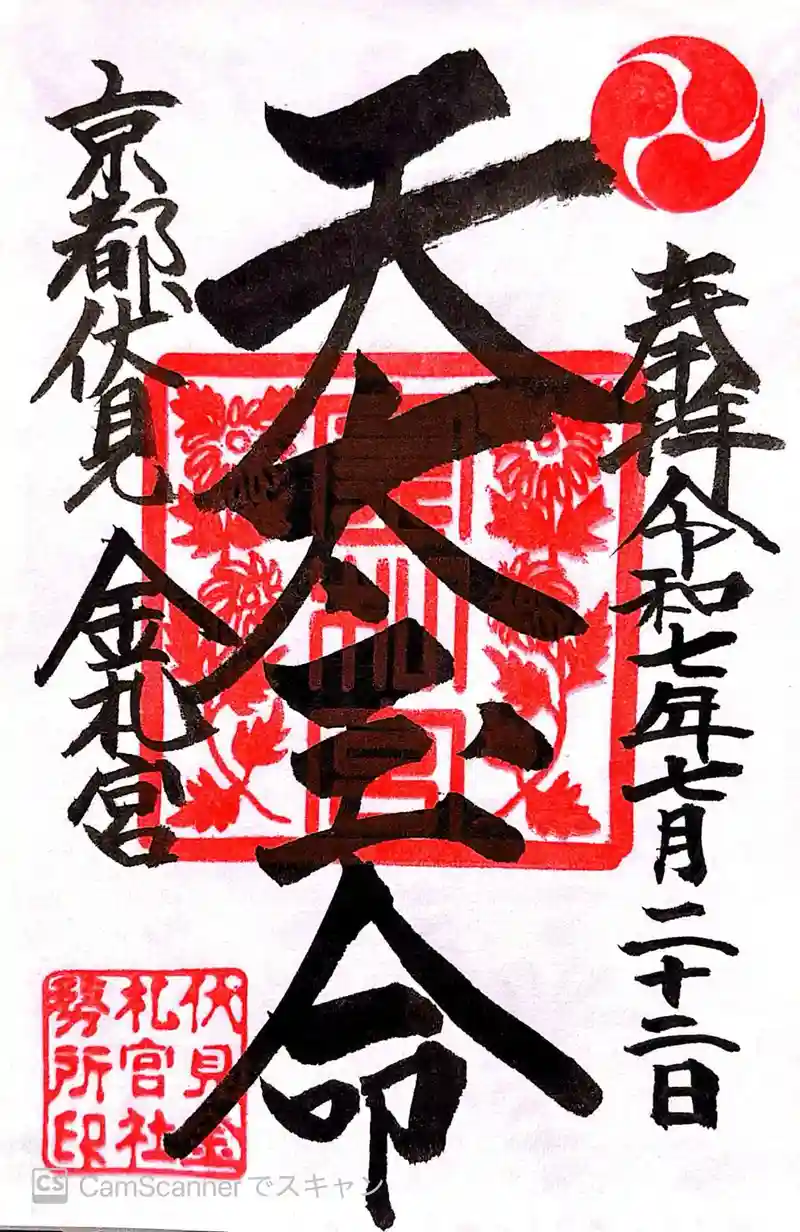 奉拝
令和七年七月二十二日
天太玉命
京都伏見
金札宮
伏見金
札宮社
務所印
CS CamScannerでスキャン